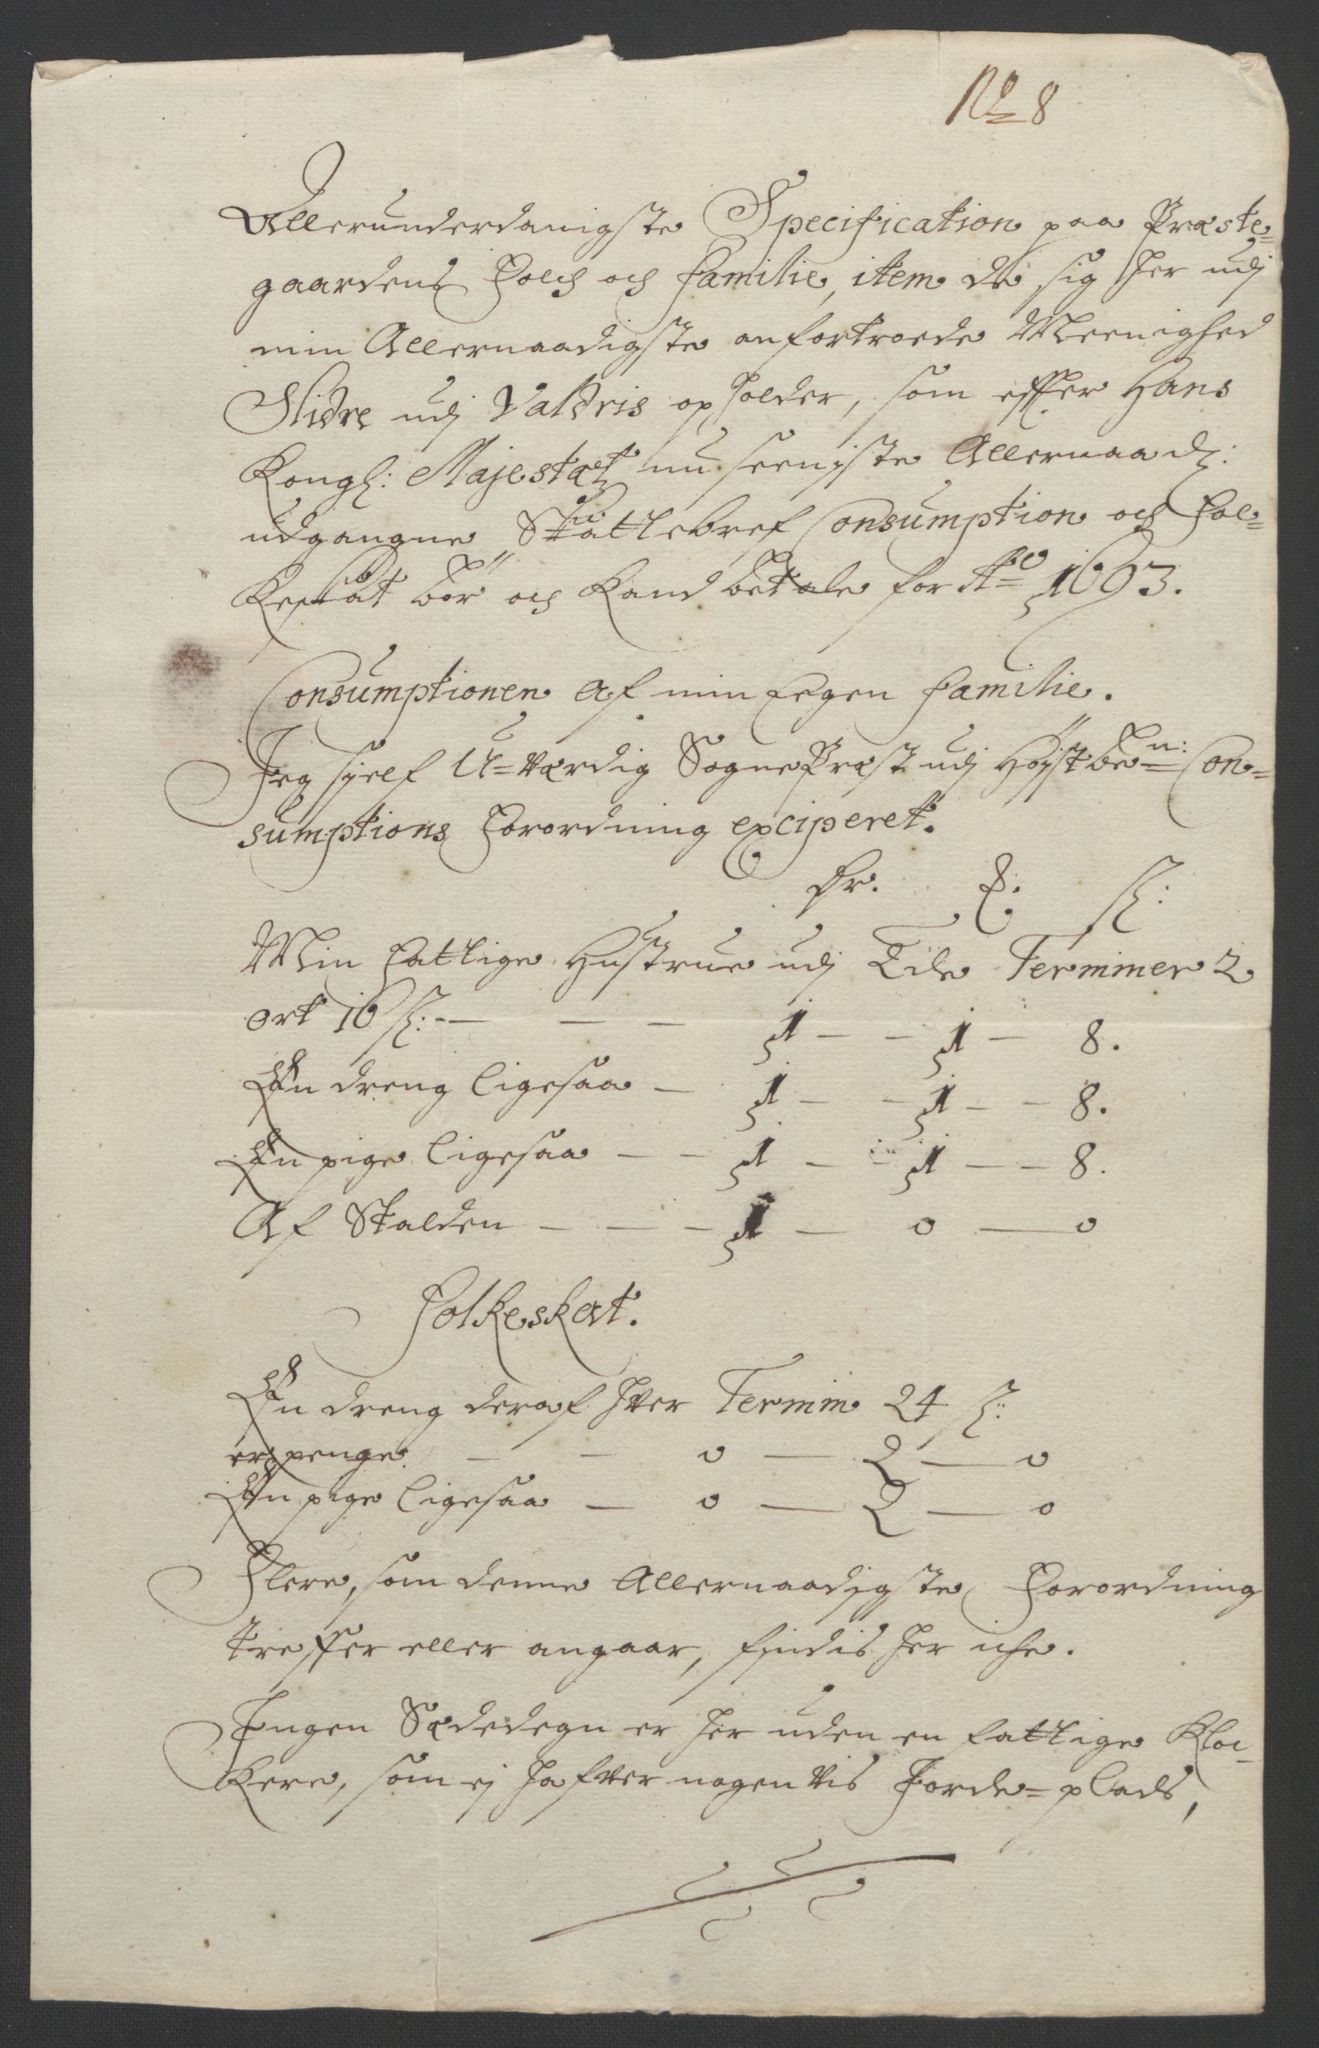 No 8
Allerunderdanigste Specification paa Præste=
gaardens Folch och familie, item de sig her udj
min Allernaadigste anfortroede Meenighed
Slidre udj Valdris opholder, som effter Hans
Kongl: Majestæt nu seenjste Allernaad:
udgangne Skattebref Consumption och Fol=
Keskat bør och Kand betale for Ao 1693.
Consumptionen Af min Eegen familie.
Jeg sjelf U=værdig SognePræst udj Højstbem.n: Con=
sumptions Forordning exciperet.
Dr. ß:
Min Fattige Hustrue udj Tide Terminer 2
ort 16 ß: — — — 1 — — 1 — 8.
En dreng ligesaa — 1 — — 1 — — 8.
En pige ligesaa — — 1 — — 1 — — 8.
Af Skatden — — — 1 — 0 — 0
Folkeskat.
En dreng deraf hver Termin 24 ß:
er penge. — — 0 — 2 — 0
En pige ligesaa — 0 — 2 — 0
Flere, som denne Allernaadigste Forordning
treffer eller angaar, findis her iche.
Ingen Sædedegn er her uden en fattige Kloc=
Kere, som ej hafver nogen vis Jorde=plads,